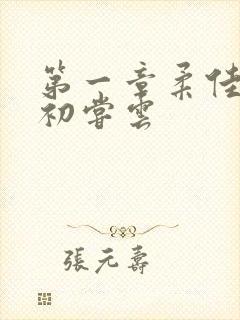 第一章柔佳
初嘗雲
張元壽